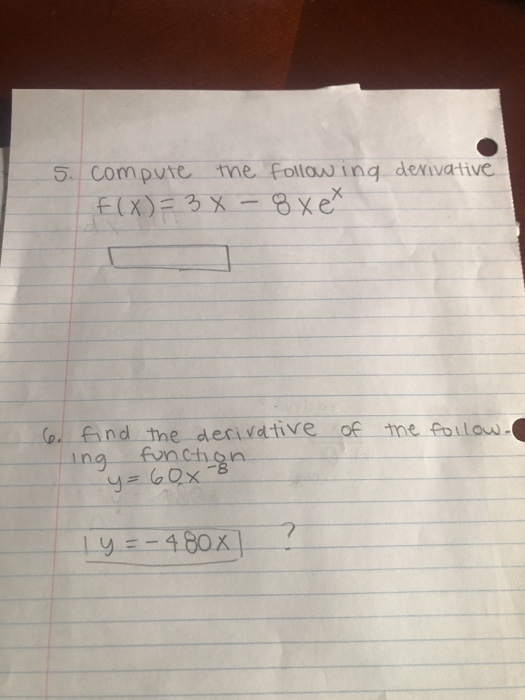 5. compute the following derivative
f(x) = 3x - 8xeˣ
6. find the derivative of the follow-
ing function
y = 60x⁻⁸
y = -480x ?